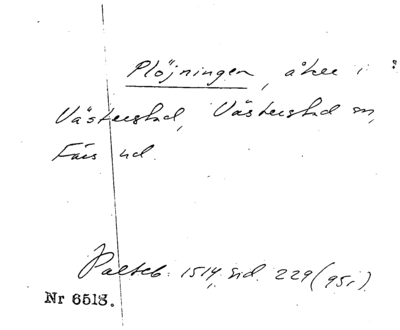 Plöjningen, åker i
Västerstad, Västerstad sn,
Färs hd.
Palteb. 1514, sid. 229 (95r)
Nr 6513.